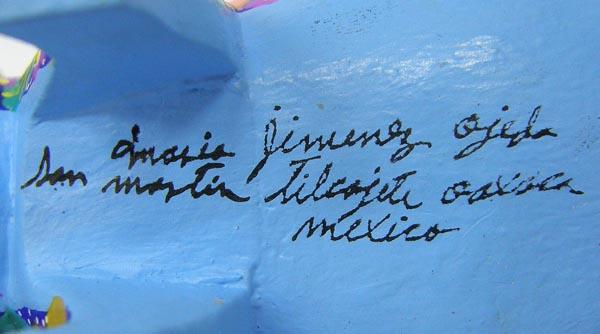 maria Jimenez Ojeda
san martin tilcajete oaxaca
mexico